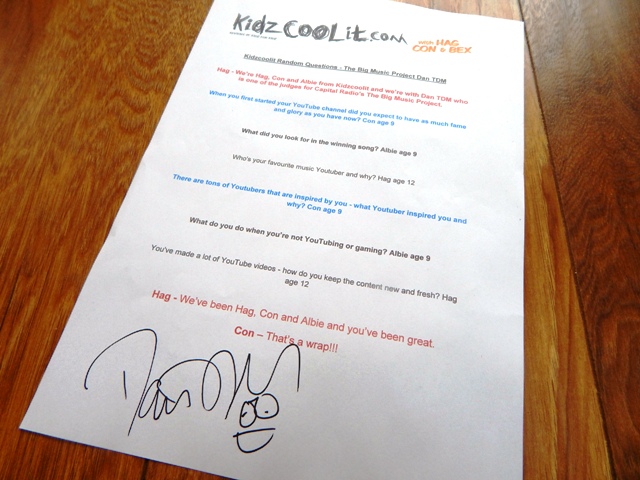 KidZCOOLit.com
with HAG
CON & BEX
Kidzcoolit Random Questions - The Big Music Project Dan TDM
Hag - We're Hag, Con and Albie from Kidzcoolit and we're with Dan TDM who
is one of the judges for Capital Radio's The Big Music Project.
When you first started your YouTube channel did you expect to have as much fame
and glory as you have now? Con age 9
What did you look for in the winning song? Albie age 9
Who's your favourite music Youtuber and why? Hag age 12
There are tons of Youtubers that are inspired by you - what Youtuber inspired you and
why? Con age 9
What do you do when you're not YouTubing or gaming? Albie age 9
You've made a lot of YouTube videos - how do you keep the content new and fresh? Hag
age 12
Hag - We've been Hag, Con and Albie and you've been great.
Con – That's a wrap!!!